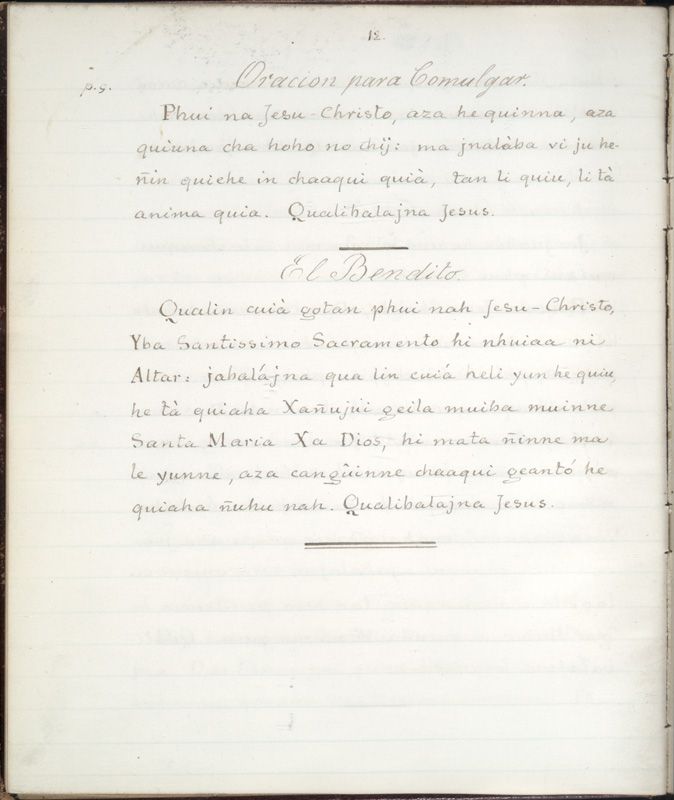 12.
p.9.
Oracion para Comulgar.
Phui na Jesu-Christo, aza he quinna, aza
quiuna cha hoho no chij: ma jnalàba vi ju he-
ñin quiehe in chaaqui quià, tan li quiu, li tà
anima quia. Qualibatajna Jesus.
El Bendito.
Qualin cuià gotan phui nah Jesu-Christo,
Yba Santissimo Sacramento hi nhuiaa ni
Altar: jabalájna qua lin cuiá heli yun he quiu,
he tà quiaha Xañujui geila muiba muinne
Santa Maria Xa Dios, hi mata ñinne ma
le yunne, aza cangûinne chaaqui geantó he
quiaha ñuhu nah. Qualibatajna Jesus.